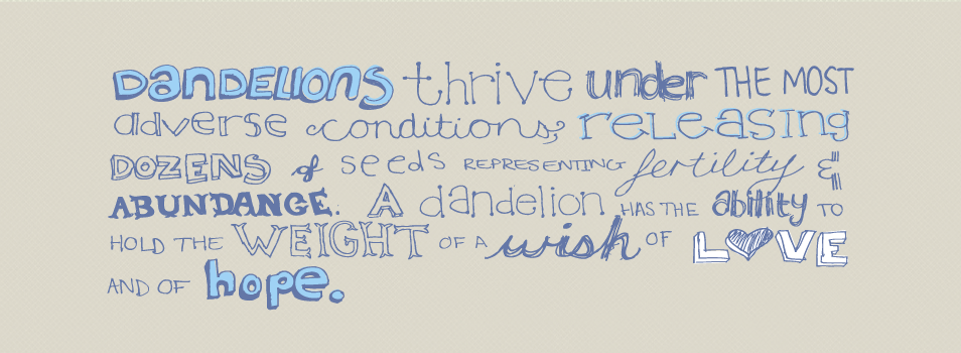 DanDELIONS thrive under THE MOST
adverse conditions, reLeasing
DOZENS of seeds REPRESENTING fertility &
ABUNDANCE. A dandelion HAS THE ability TO
HOLD THE WEIGHT OF A wish OF L♥VE
AND OF hope.